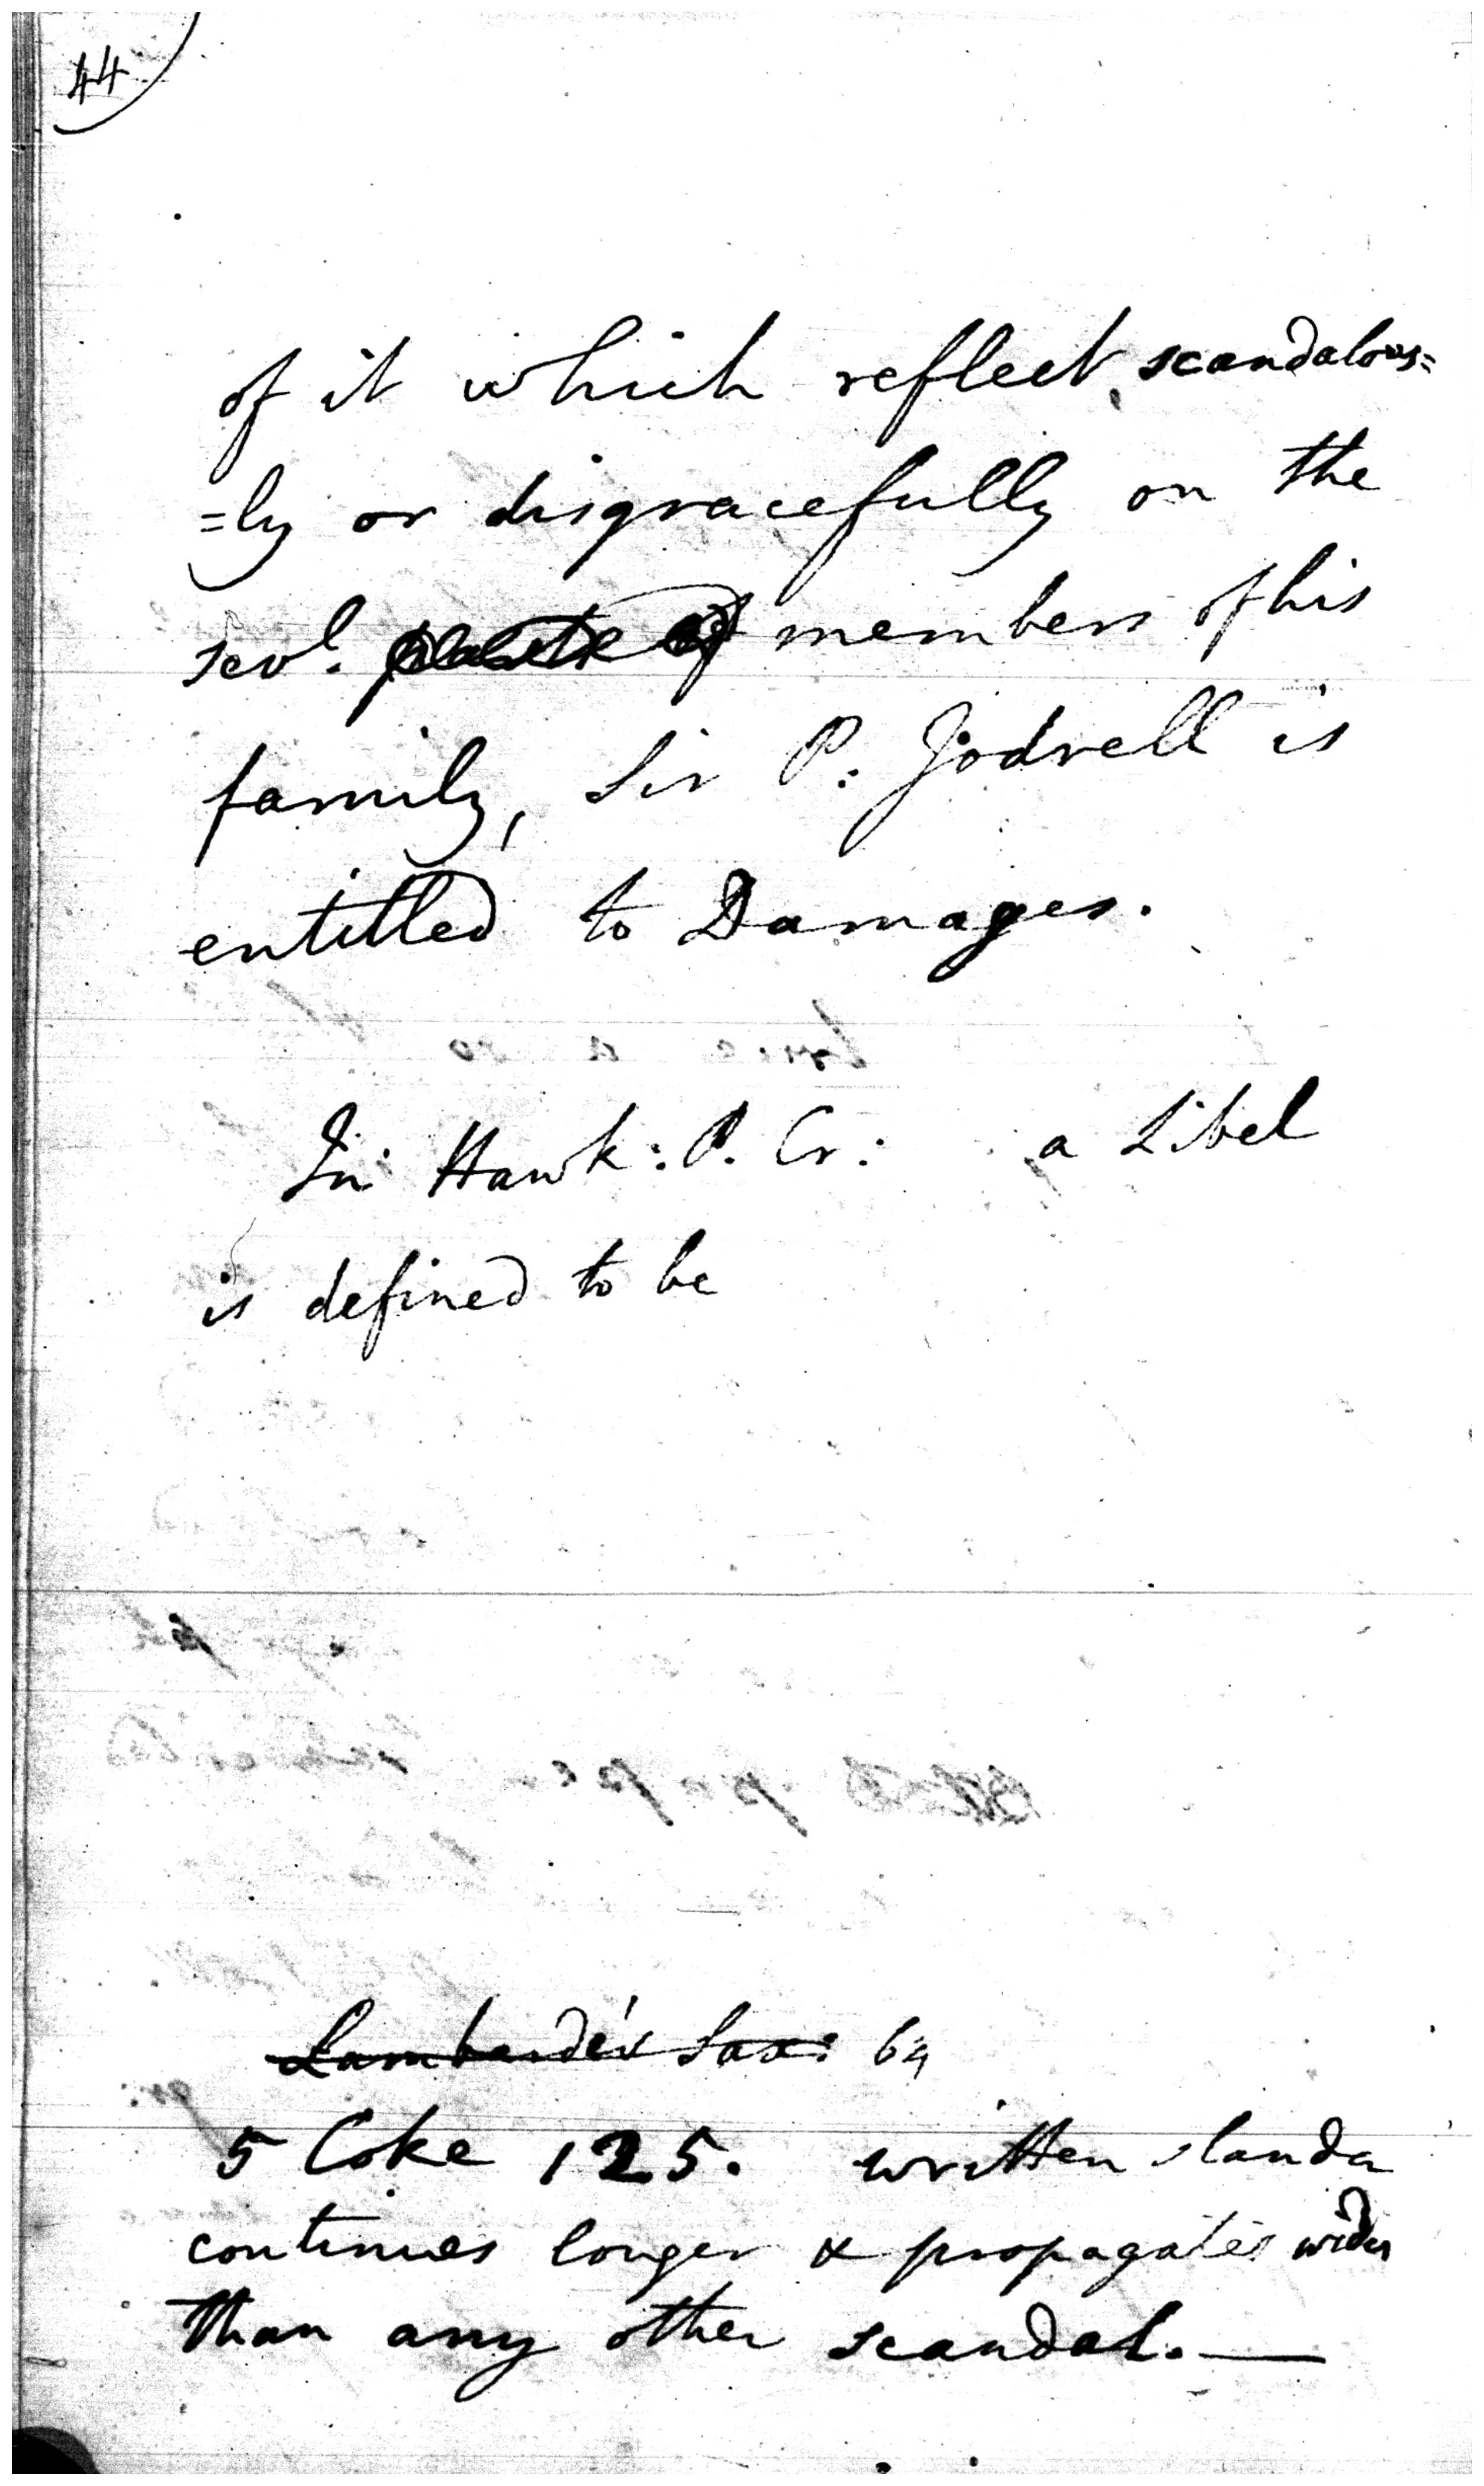 44
of it which reflect, scandalous=
=ly or disgracefully on the
sevl. members of his
family, Sir P: Jodrell is
entitled to Damages.
In Hawk: P. Cr: a Libel
is defined to be
Lambarde's Sax: 64
5 Coke 125. written slander
continues longer & propagates wider
than any other scandal.—